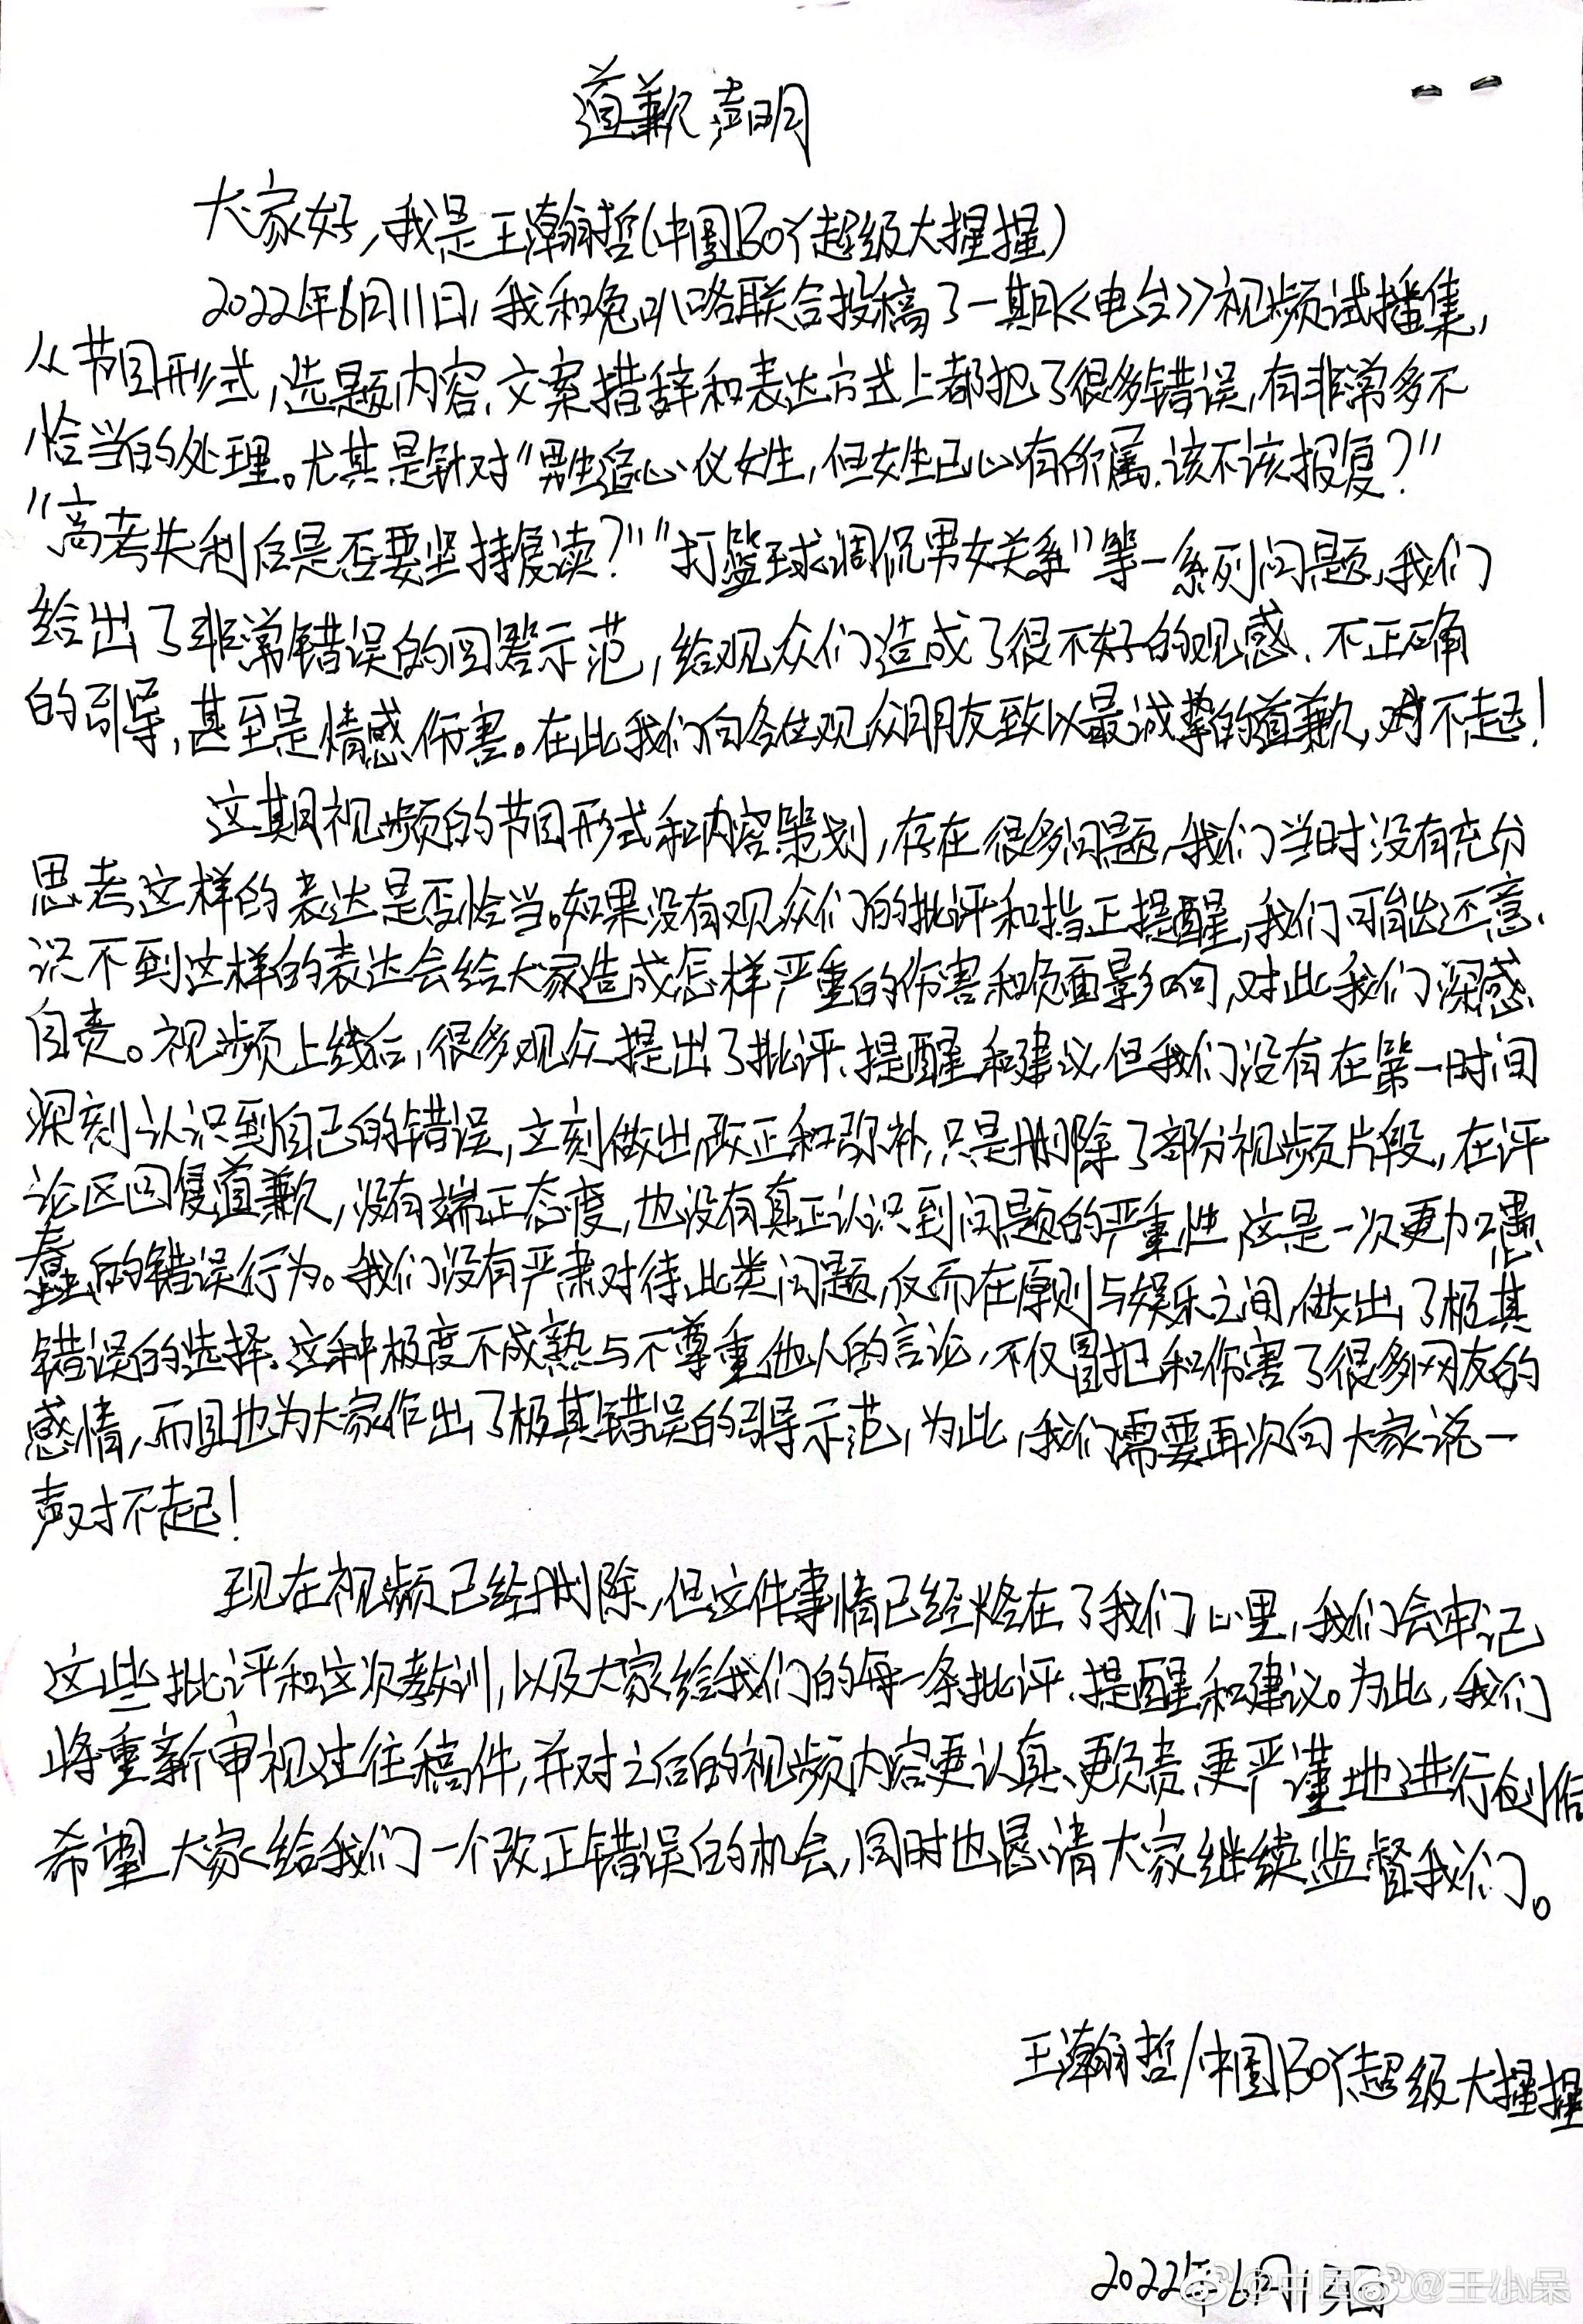 道歉声明
大家好,我是王瀚哲(中国BOY超级大猩猩)
2022年6月11日,我和兔叭咯联合投稿了一期《电台》视频试播集,
从节目形式,选题内容、文案措辞和表达方式上都犯了很多错误,有非常多不
恰当的处理。尤其是针对"男生追心仪女生,但女生已心有所属、该不该报复?"
"高考失利后是否要坚持复读?""打篮球调侃男女关系"等一系列问题,我们
给出了非常错误的回答示范,给观众们造成了很不好的观感、不正确
的引导,甚至是情感伤害。在此我们向各位观众朋友致以最诚挚的道歉,对不起!
这期视频的节目形式和内容策划,存在很多问题,我们当时没有充分
思考这样的表达是否恰当。如果没有观众们的批评和指正提醒,我们可能还意
识不到这样的表达会给大家造成怎样严重的伤害和负面影响,对此我们深感
自责。视频上线后,很多观众提出了批评、提醒和建议,但我们没有在第一时间
深刻认识到自己的错误,立刻做出改正和弥补,只是删除了部分视频片段,在评
论区回复道歉,没有端正态度,也没有真正认识到问题的严重性,这是一次更加愚
蠢的错误行为。我们没有严肃对待此类问题,反而在原则与娱乐之间,做出了极其
错误的选择、这种极度不成熟与不尊重他人的言论,不仅冒犯和伤害了很多网友的
感情,而且也为大家作出了极其错误的引导示范,为此,我们需要再次向大家说一
声对不起!
现在视频已经删除,但这件事情已经烙在了我们心里,我们会牢记
这些批评和这次教训,以及大家给我们的每一条批评、提醒和建议。为此,我们
将重新审视过往稿件,并对之后的视频内容更认真、更负责、更严谨地进行创作
希望大家给我们一个改正错误的机会,同时也恳请大家继续监督我们。
王瀚哲/中国BOY超级大猩猩
2022年6月13日
@王小呆